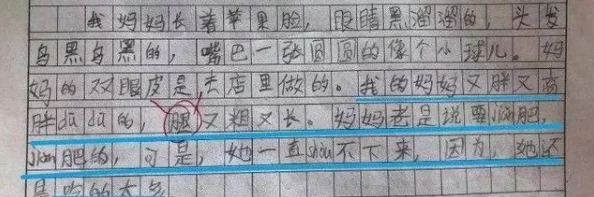 我妈妈长着苹果脸，眼睛黑溜溜的，头发
乌黑乌黑的，嘴巴一张圆圆的像个小球儿。妈
妈的双眼皮是去店里做的。我的妈妈又胖又高
胖dū dū的，腿又粗又长。妈妈老是说要减肥，
减肥的，可是，她一直shòu不下来，因为，她还
是吃的太多